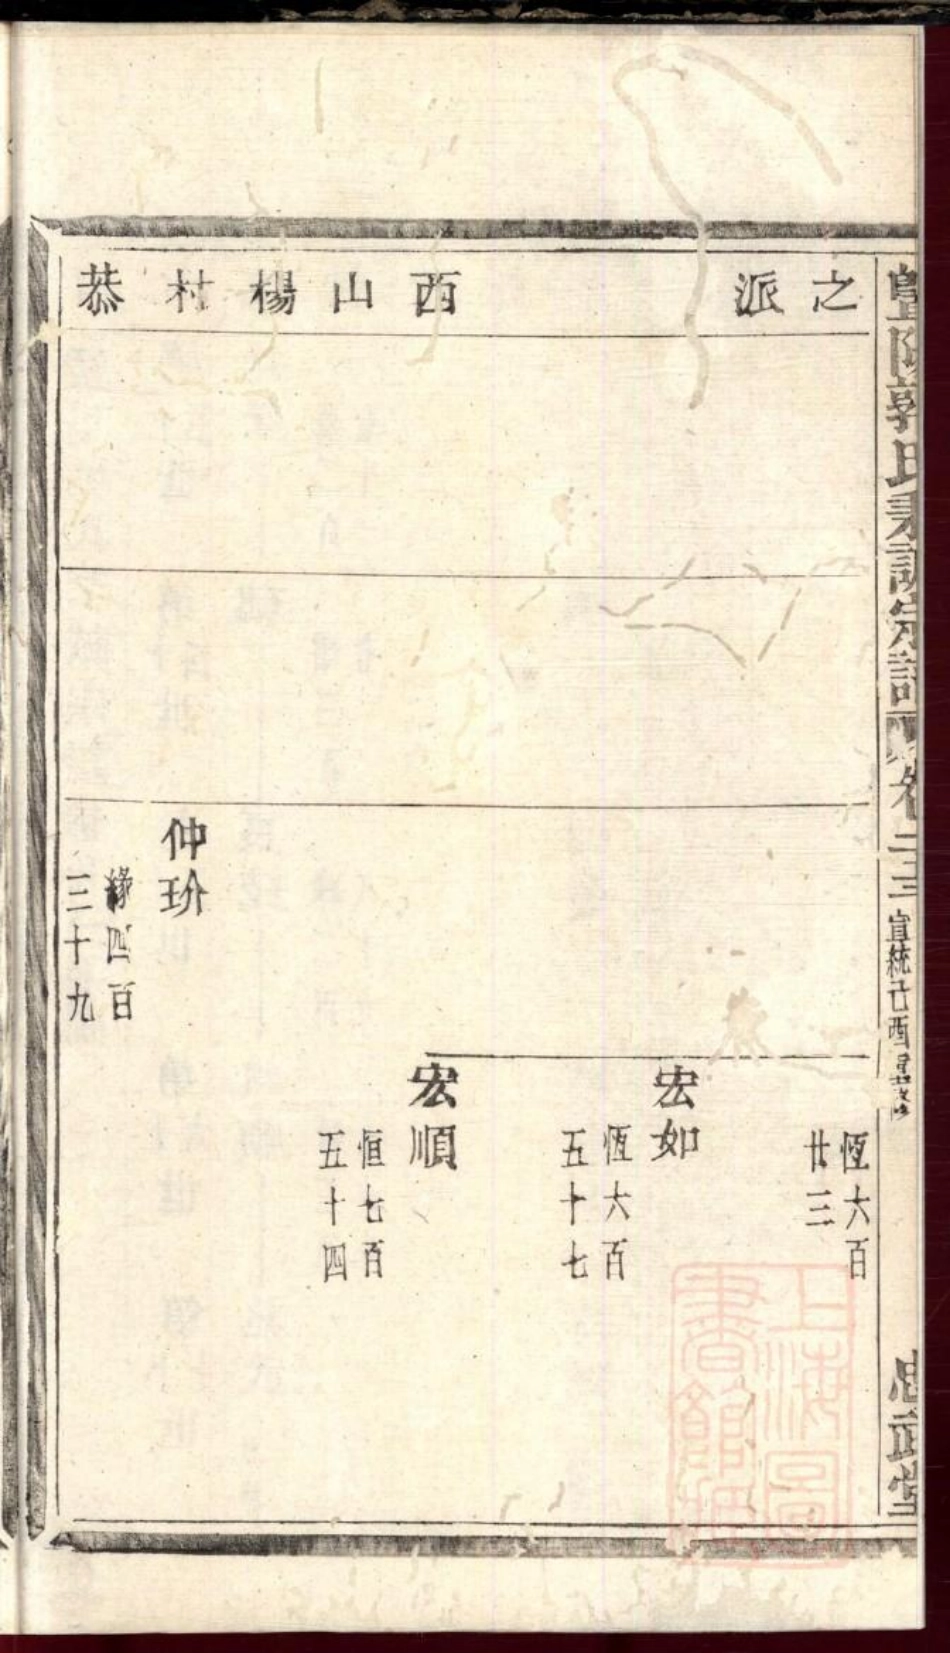 暨陽郭氏夫諫宗譜 卷二三 宣統己酉重修 忠武堂
之派
恆六百
廿三
宏如
恆六百
五十七
西山楊村恭
宏順
恒七百
五十四
仲玠
緣四百
三十九
上海圖
書館藏